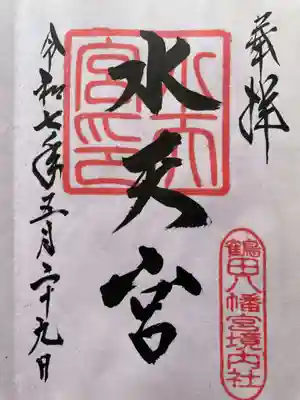 奉拝
水天宮
水天宮印
鶴田八幡宮境内社
令和七年五月二十九日